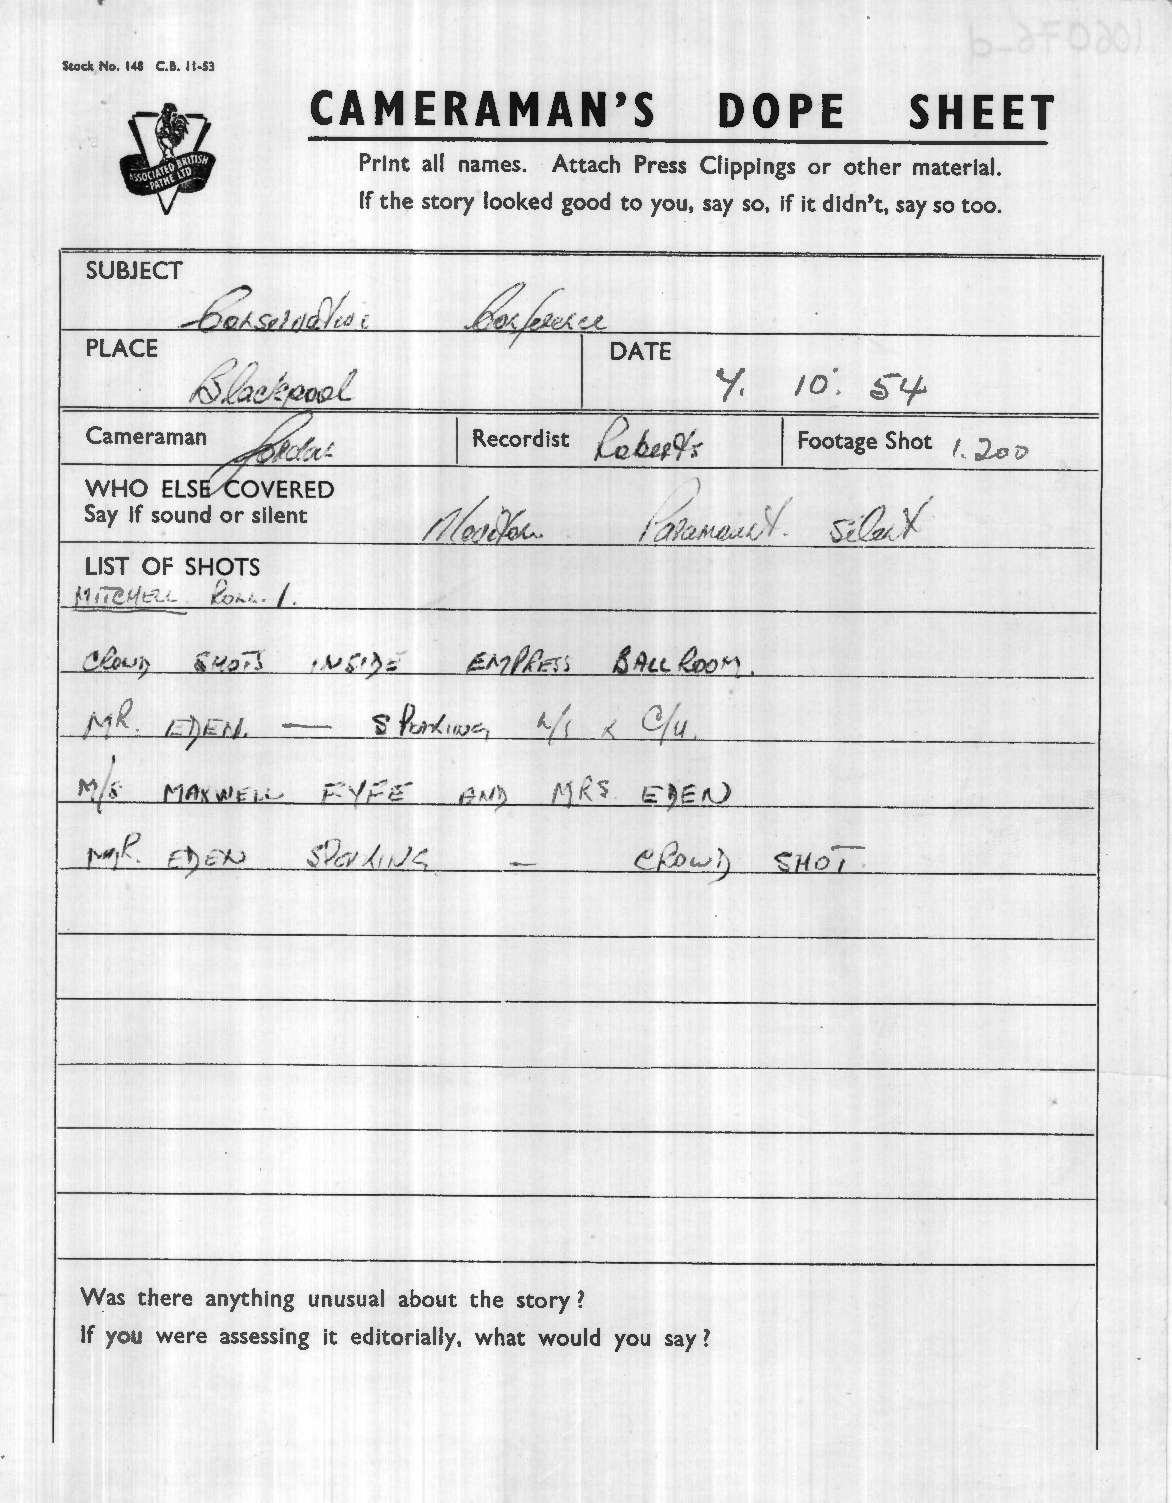 Stock No. 148 C.B. 11-53
CAMERAMAN'S DOPE SHEET
ASSOCIATED BRITISH
-PATHE LTD
Print all names. Attach Press Clippings or other material.
If the story looked good to you, say so, if it didn't, say so too.
SUBJECT
Conservative Conference
PLACE
Blackpool
DATE
7. 10. 54
Cameraman Jordan
Recordist Roberts
Footage Shot 1.200
WHO ELSE COVERED
Say if sound or silent
Movietone Paramount. Silent
LIST OF SHOTS
MITCHELL ROLL. 1.
CROWD SHOTS INSIDE EMPRESS BALL ROOM.
MR. EDEN. — SPEAKING L/S & C/U.
M/S MAXWELL FYFE AND MRS EDEN
MR. EDEN SPEAKING — CROWD SHOT.
Was there anything unusual about the story?
If you were assessing it editorially, what would you say?